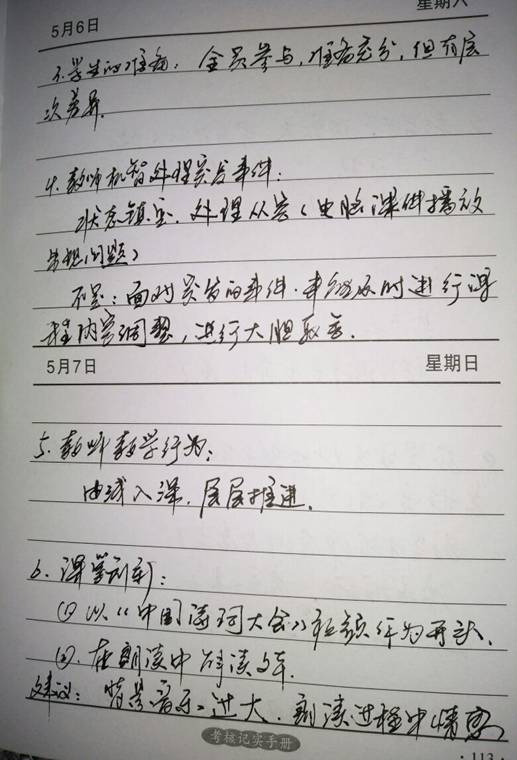 5月6日 星期六
3.学生的准备：全员参与，准备充分，但有层
次差异.
4.教师机智处理突发事件：
状态镇定.处理从容（电脑课件播放
出现问题）
不足：面对突发的事件.未能及时进行课
程内容调整，进行大胆取舍.
5月7日 星期日
5.教师教学行为：
由浅入深.层层推进.
6.课堂创新：
(1)以《中国诗词大会》视频作为开头.
(2).在朗读中 诗读
建议：背景音乐 过大.朗读过程中情感
考核记实手册
·113·